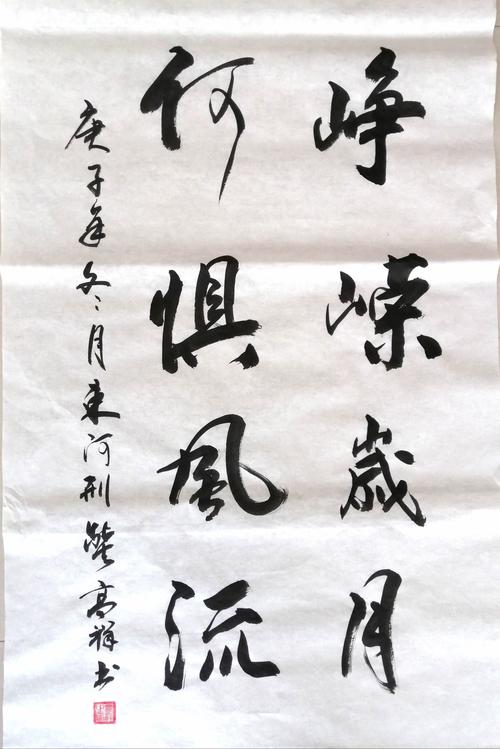 峥嵘歲月
何惧風流
庚子年冬月東河刑警高祥书